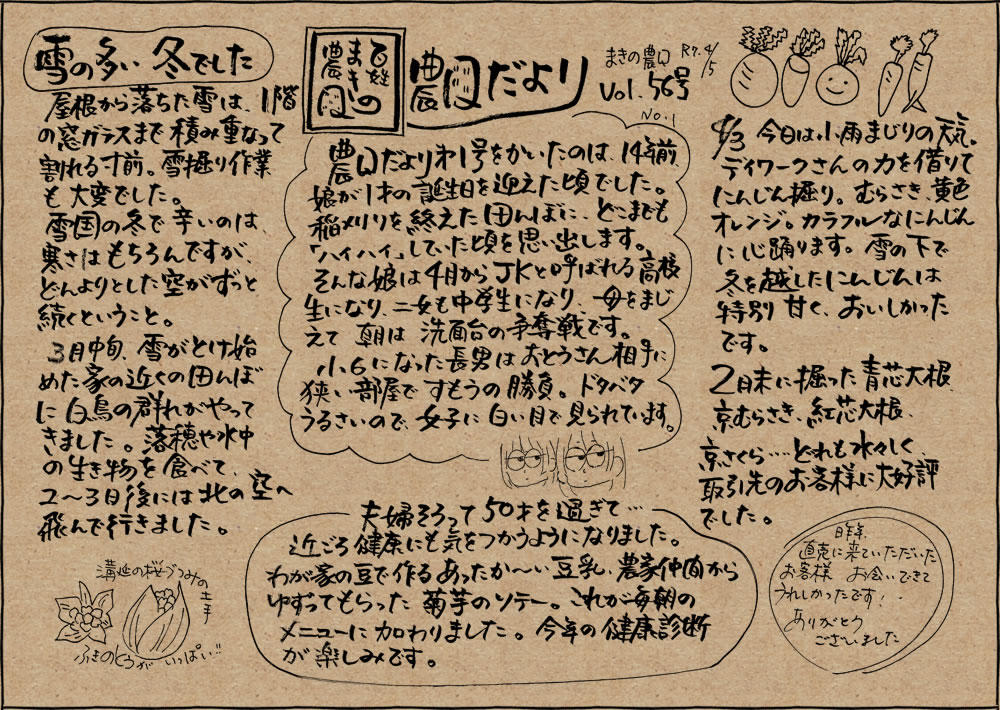 雪の多い冬でした
屋根から落ちた雪は、1階
の窓ガラスまで積み重なって
割れる寸前。雪掘り作業
も大変でした。
雪国の冬で辛いのは、
寒さはもちろんですが、
どんよりとした空がずっと
続くということ。
3月中旬、雪がとけ始
めた家の近くの田んぼ
に白鳥の群れがやって
きました。落穂や水中
の生き物を食べて、
2〜3日後には北の空へ
飛んで行きました。
溝延の桜づつみの
土手
ふきのとうが いっぱい!!
百姓
まきの
農口
農口だより
まきの農口 R7.4/5
Vol.56号
No.1
農口だより才1号をかいたのは、14年前、
娘が1才の誕生日を迎えた頃でした。
稲刈りを終えた田んぼに、どこまでも
「ハイハイ」していた頃を思い出します。
そんな娘は4月からJKと呼ばれる高校
生になり、二女も中学生になり、母をまじ
えて 朝は 洗面台の争奪戦です。
小6になった長男はおとうさん相手に
狭い部屋ですもうの勝負。ドタバタ
うるさいので、女子に白い目で見られています。
夫婦そろって50才を過ぎて…
近ごろ健康にも気をつかうようになりました。
わが家の豆で作るあったか〜い豆乳、農家仲間から
ゆずってもらった 菊芋のソテー。これが毎朝の
メニューに加わりました。今年の健康診断
が楽しみです。
4/3 今日は小雨まじりの天気。
ディワークさんの力を借りて
にんじん掘り。むらさき、黄色
オレンジ。カラフルなにんじん
に心踊ります。雪の下で
冬を越したにんじんは
特別 甘く、おいしかった
です。
2月末に掘った青芯大根、
京むらさき、紅芯大根、
京さくら…どれも水々しく
取引先のお客様に大好評
でした。
昨年、
直売に来ていただいた
お客様 お会いできて
うれしかったです!
ありがとう
ございました